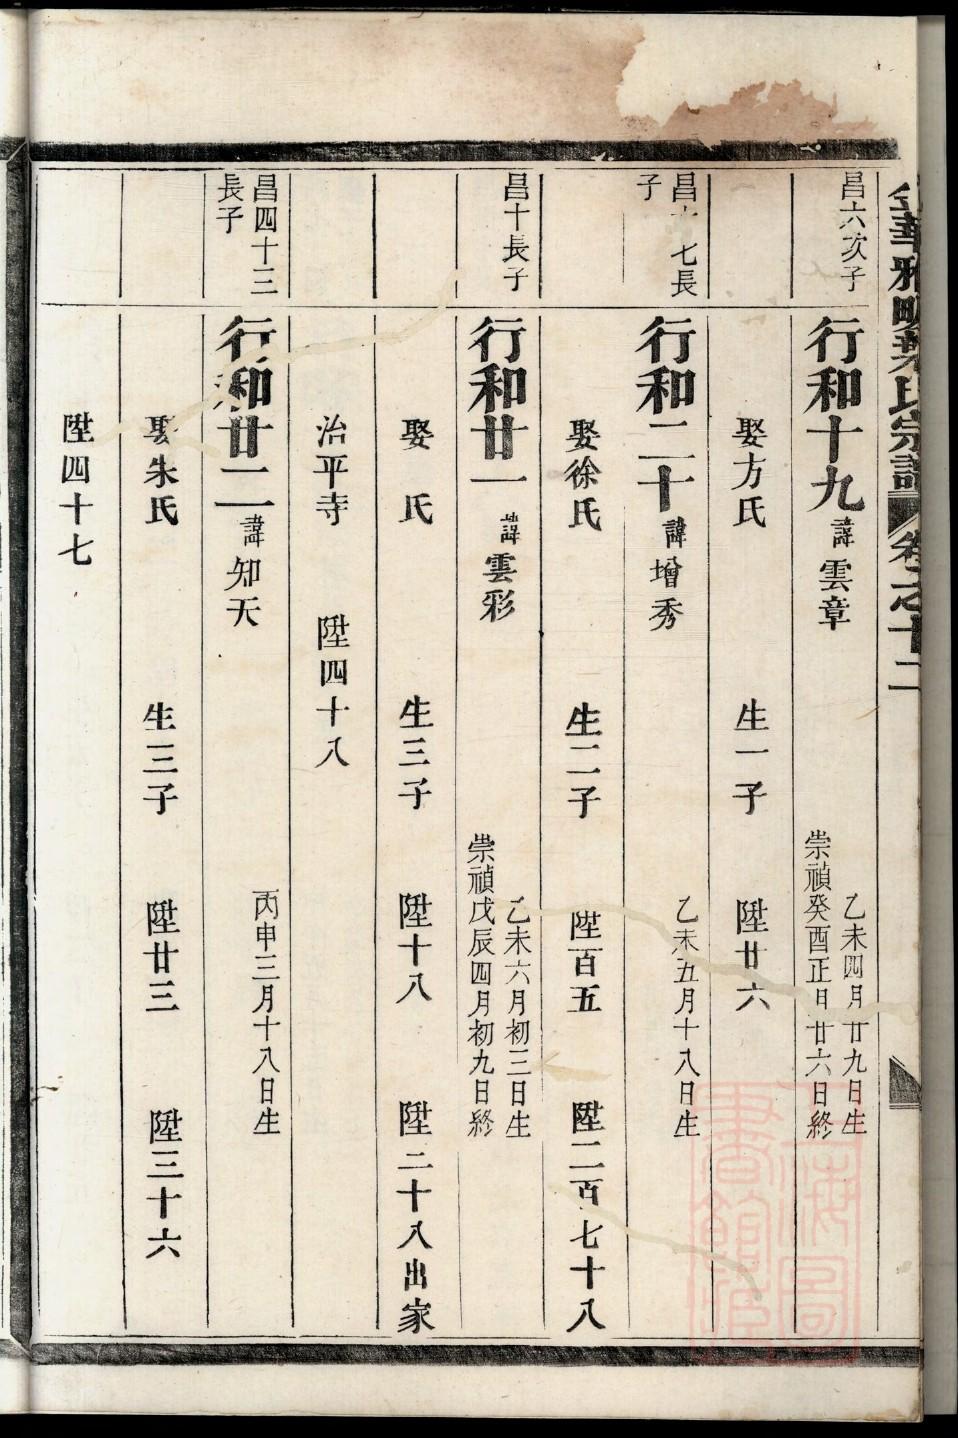 金華雅畈葉氏宗譜 卷之十二
昌六次子
行和十九 諱雲章
乙未四月廿九日生
崇禎癸酉正月廿六日終
娶方氏 生一子 陞廿六
昌 七長
子
行和二十 諱增秀
乙未五月十八日生
娶徐氏 生二子 陞百五 陞二百七十八
昌十長子
行和廿一 諱雲彩
乙未六月初三日生
崇禎戊辰四月初九日終
娶 氏 生三子 陞十八 陞二十八出家
治平寺 陞四十八
昌四十三
長子
行和廿二 諱知天
丙申三月十八日生
娶朱氏 生三子 陞廿三 陞三十六
陞四十七